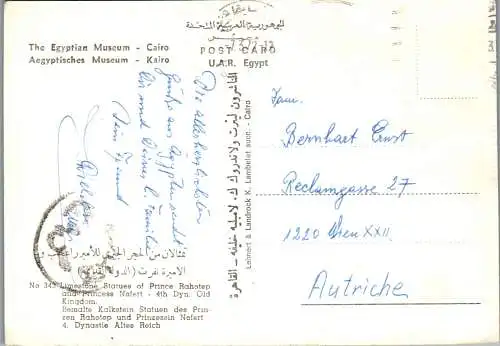 الجمهورية العربية المتحدة
The Egyptian Museum - Cairo
Aegyptisches Museum - Kairo
POST CARD
U.A.R. Egypt
Die allerherzlichsten
Grüße aus Ägypten sendet
Dir und Deiner l. Familie
Dein Freund
No 343 Limestone Statues of Prince Rahotep
and Princess Nefert - 4th Dyn. Old
Kingdom.
Bemalte Kalkstein Statuen des Prin-
zen Rahotep und Prinzessin Nefert
4. Dynastie Altes Reich
الناشرون لينرت ولاندروك ك. لامبليه خلفه - القاهرة
Lehnert & Landrock K. Lambelet succ. - Cairo
Fam.
Bernhart Ernst
Reclamgasse 27
1220 Wien XXII
Autriche